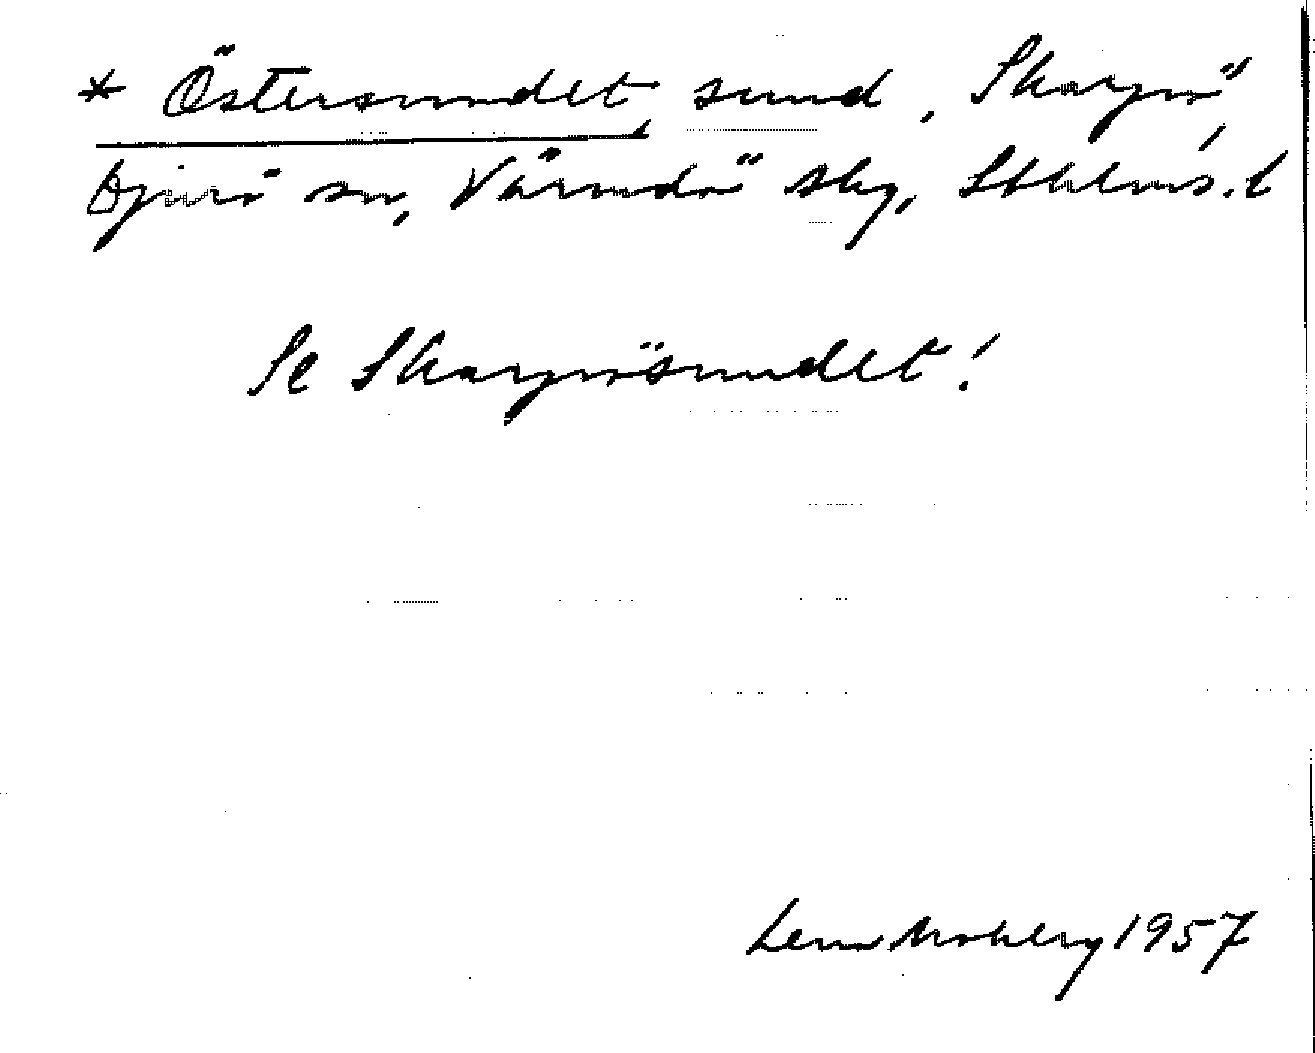 * Östersundet sund, Skarpö
Djurö sn, Värmdö skg, Sthlms. l
Se Skarpösundet!
Lena Moberg 1957